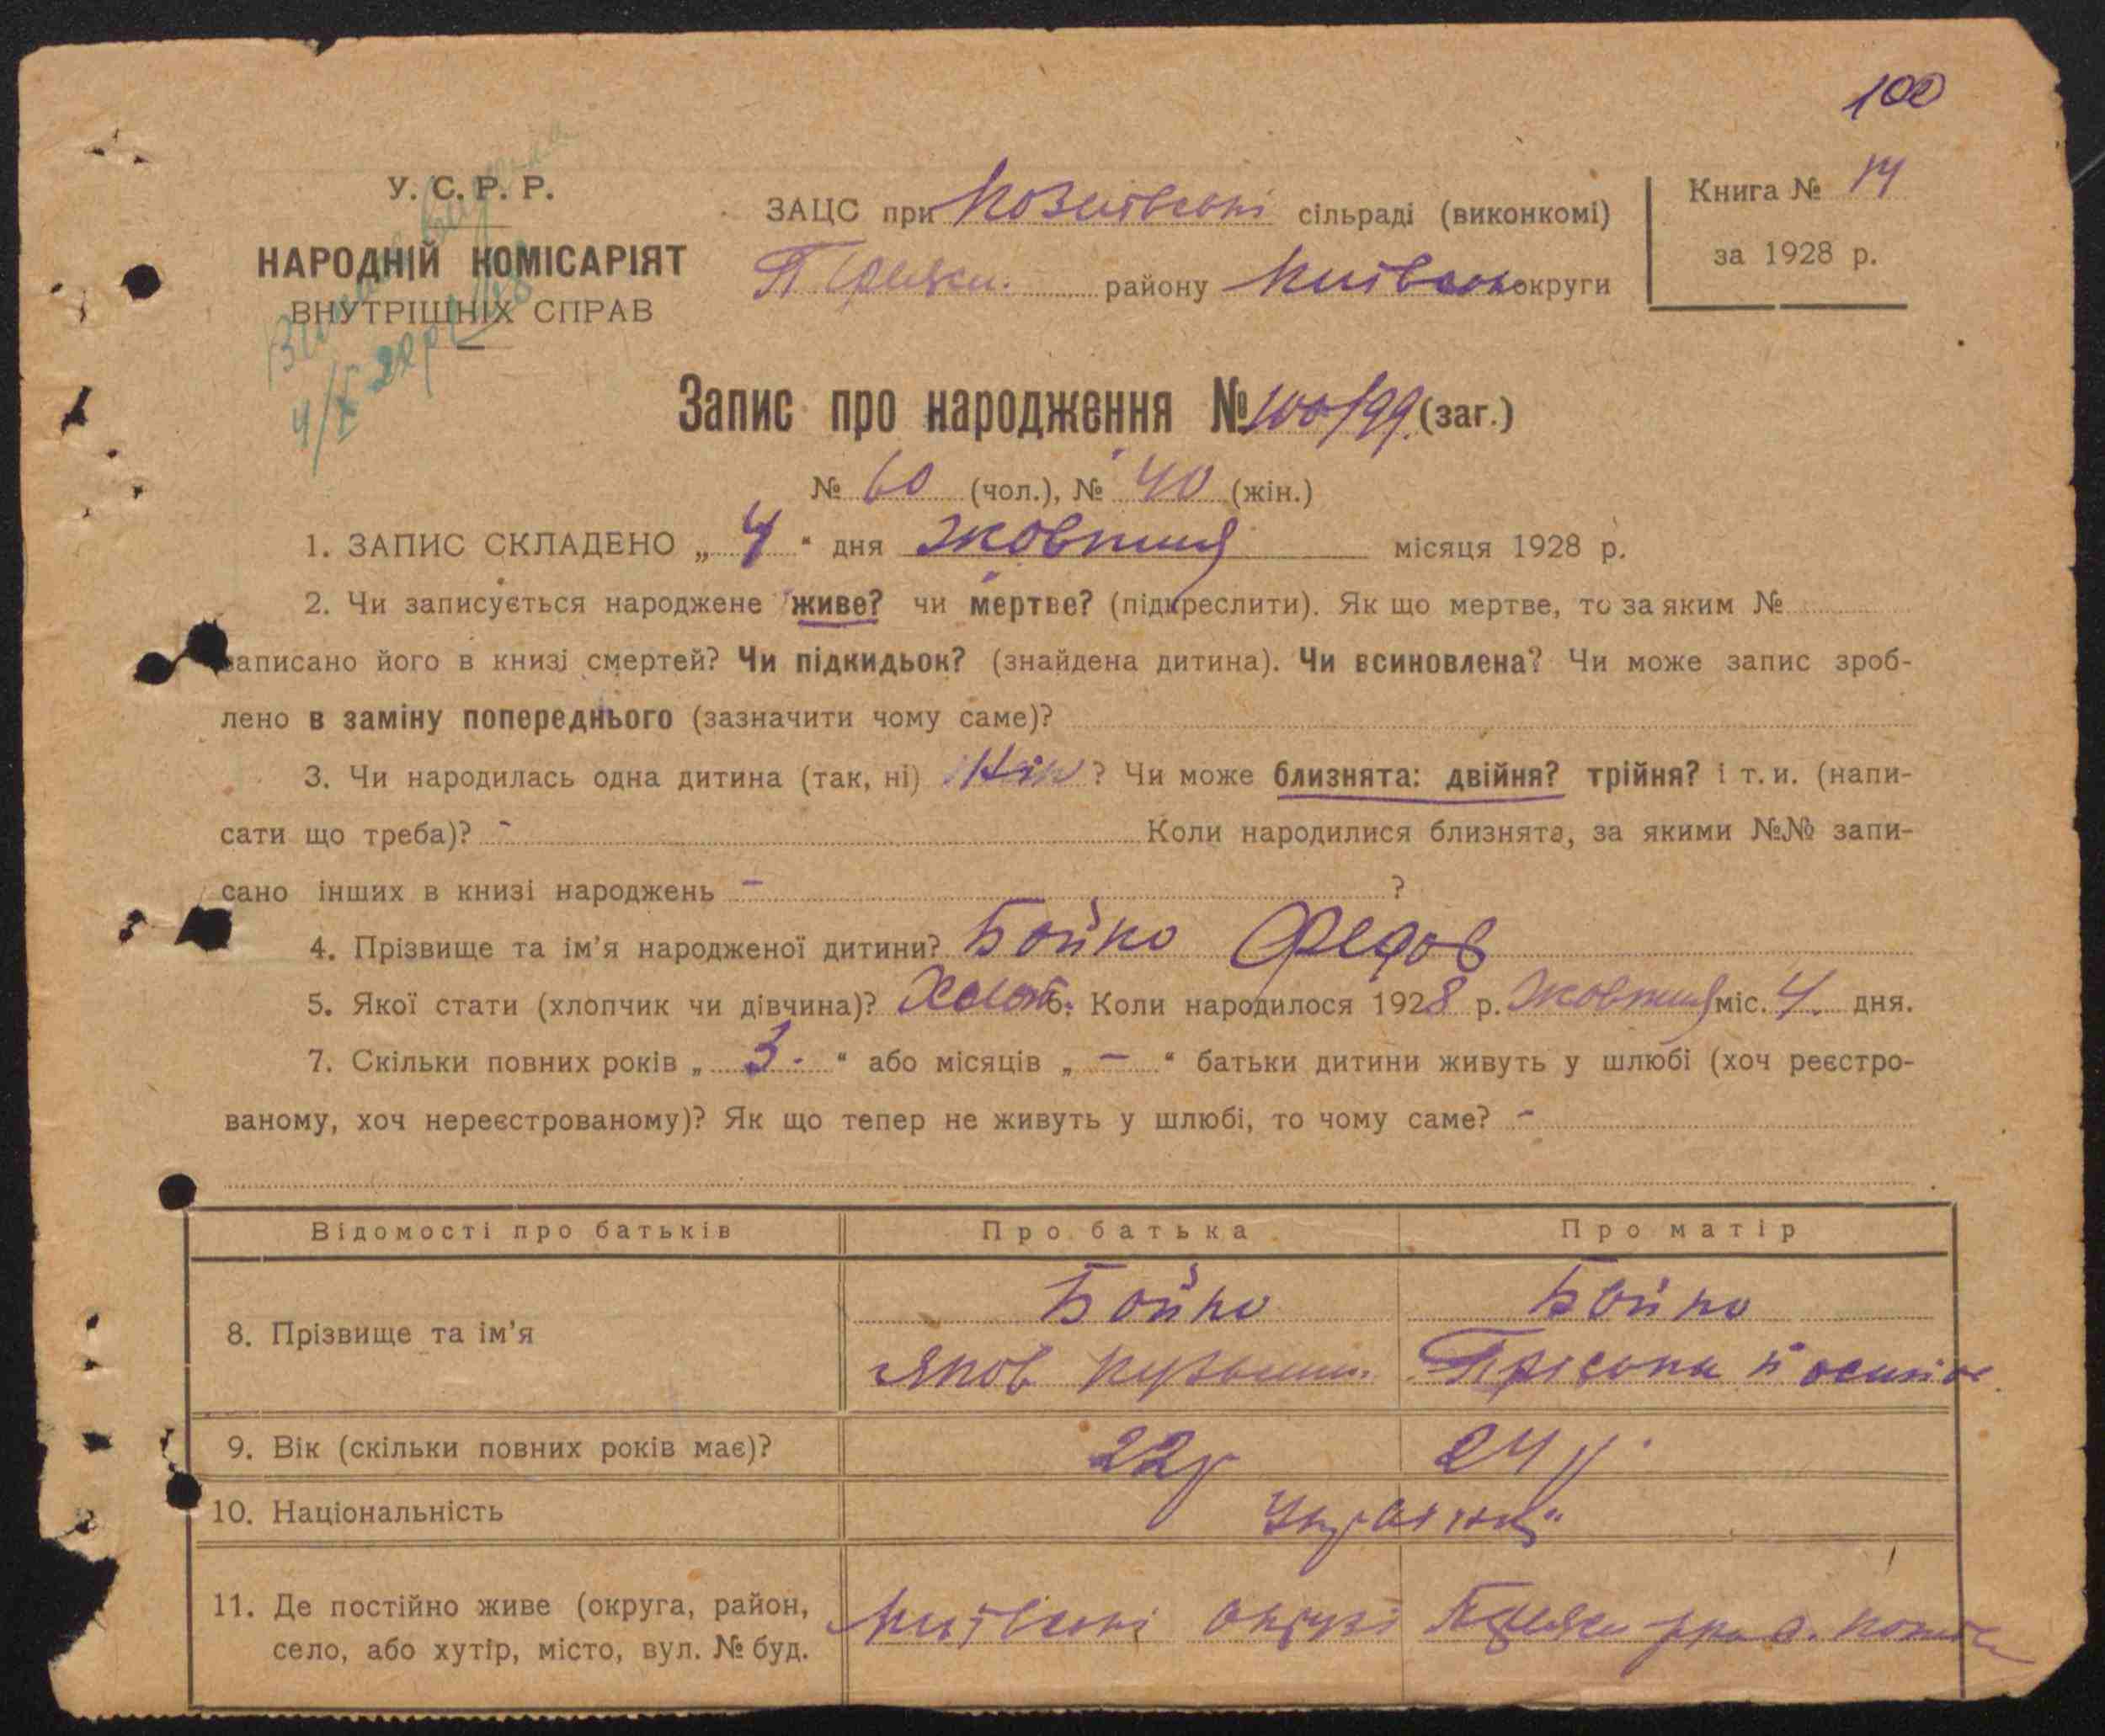 100
У. С. Р. Р.
НАРОДНІЙ КОМІСАРІЯТ
ВНУТРІШНІХ СПРАВ
ЗАЦС при сільраді (виконкомі)
району Київськ округи
Книга № 14
за 1928 р.
Запис про народження № 100/99 (заг.)
№ 60 (чол.), № 40 (жін.)
1. ЗАПИС СКЛАДЕНО „ 4 “ дня жовтня місяця 1928 р.
2. Чи записується народжене живе? чи мертве? (підкреслити). Як що мертве, то за яким №
записано його в книзі смертей? Чи підкидьок? (знайдена дитина). Чи всиновлена? Чи може запис зроб-
лено в заміну попереднього (зазначити чому саме)?
3. Чи народилась одна дитина (так, ні) ? Чи може близнята: двійня? трійня? і т. и. (напи-
сати що треба)? - Коли народилися близнята, за якими №№ запи-
сано інших в книзі народжень - ?
4. Прізвище та ім’я народженої дитини? Бойко Федов
5. Якої стати (хлопчик чи дівчина)? Хлоп. 6. Коли народилося 1928 р. жовтня міс. 4. дня.
7. Скільки повних років „ 3. “ або місяців „ - “ батьки дитини живуть у шлюбі (хоч реєстро-
ваному, хоч нереєстрованому)? Як що тепер не живуть у шлюбі, то чому саме? -
Відомості про батьків Про батька Про матір
8. Прізвище та ім’я Бойко Бойко
Яков Кузьмин.
9. Вік (скільки повних років має)? 22 р 24 р.
10. Національність Українці
11. Де постійно живе (округа, район, Київські округи
село, або хутір, місто, вул. № буд.